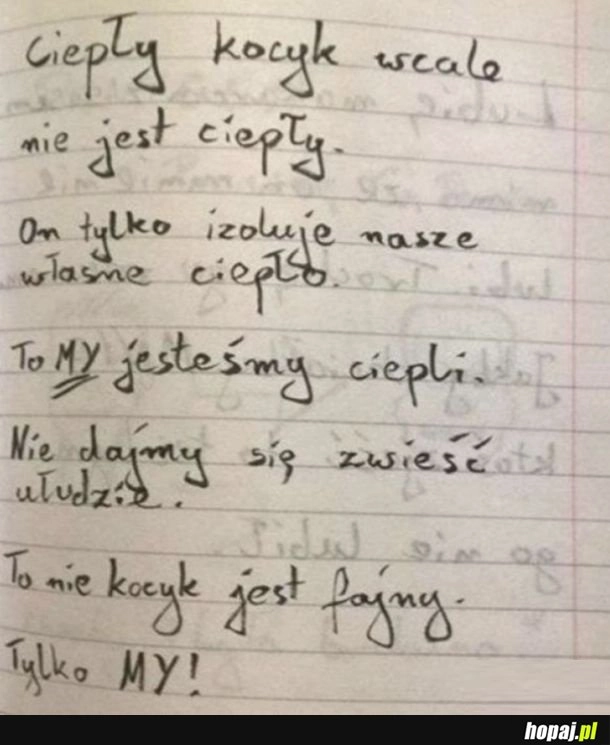 Ciepły kocyk wcale
nie jest ciepły.
On tylko izoluje nasze
własne ciepło.
To MY jesteśmy ciepli.
Nie dajmy się zwieść
ułudzie.
To nie kocyk jest fajny.
Tylko MY!
hopaj.pl